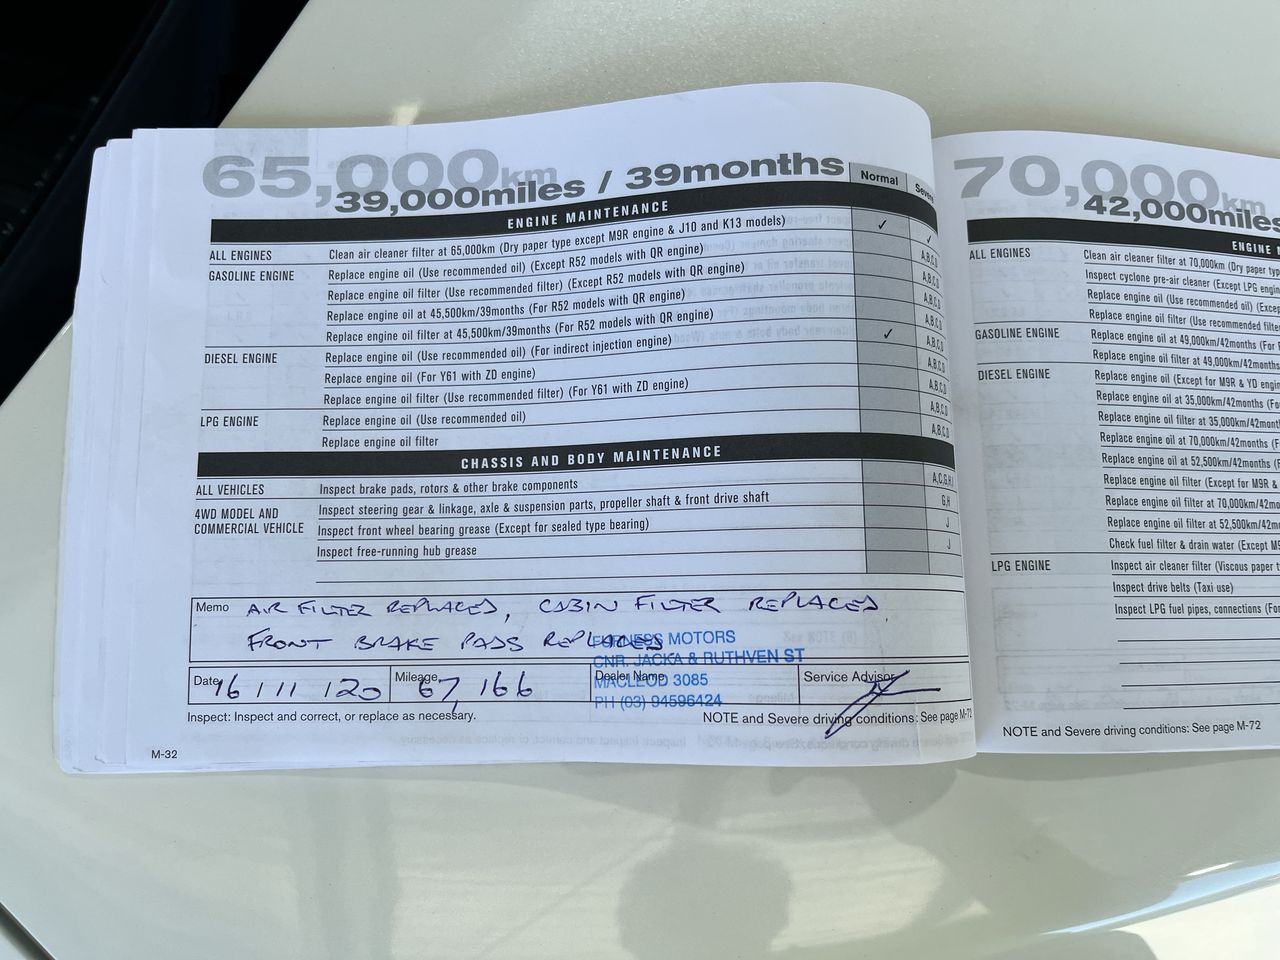 65,000km
39,000miles / 39months
Normal
ENGINE MAINTENANCE
ALL ENGINES Clean air cleaner filter at 65,000km (Dry paper type except M9R engine & J10 and K13 models) ✓ ✓
GASOLINE ENGINE Replace engine oil (Use recommended oil) (Except R52 models with QR engine) A,B,C,D
Replace engine oil filter (Use recommended filter) (Except R52 models with QR engine) A,B,C,D
Replace engine oil at 45,500km/39months (For R52 models with QR engine) A,B,C,D
Replace engine oil filter at 45,500km/39months (For R52 models with QR engine) A,B,C,D
DIESEL ENGINE Replace engine oil (Use recommended oil) (For indirect injection engine) ✓ A,B,C,D
Replace engine oil (For Y61 with ZD engine) A,B,C,D
Replace engine oil filter (Use recommended filter) (For Y61 with ZD engine) A,B,C,D
LPG ENGINE Replace engine oil (Use recommended oil) A,B,C,D
Replace engine oil filter A,B,C,D
CHASSIS AND BODY MAINTENANCE
ALL VEHICLES Inspect brake pads, rotors & other brake components A,C,G,H,I
4WD MODEL AND COMMERCIAL VEHICLE Inspect steering gear & linkage, axle & suspension parts, propeller shaft & front drive shaft G,H
Inspect front wheel bearing grease (Except for sealed type bearing) J
Inspect free-running hub grease J
Memo AIR FILTER REPLACED, CABIN FILTER REPLACED,
FRONT BRAKE PADS REPLACED
FURNESS MOTORS
CNR. JACKA & RUTHVEN ST
MACLEOD 3085
PH (03) 94596424
Date 16 / 11 / 20 Mileage 67,166 Dealer Name Service Advisor
Inspect: Inspect and correct, or replace as necessary.
NOTE and Severe driving conditions: See page M-72
M-32
70,000km
42,000miles
ENGINE
ALL ENGINES Clean air cleaner filter at 70,000km (Dry paper
Inspect cyclone pre-air cleaner (Except LPG
Replace engine oil (Use recommended oil)
Replace engine oil filter (Use recommended
GASOLINE ENGINE Replace engine oil at 49,000km/42months (For
Replace engine oil filter at 49,000km/42months
DIESEL ENGINE Replace engine oil (Except for M9R & YD
Replace engine oil at 35,000km/42months
Replace engine oil filter at 35,000km/42months
Replace engine oil at 70,000km/42months
Replace engine oil at 52,500km/42months
Replace engine oil filter (Except for M9R &
Replace engine oil filter at 70,000km/42
Replace engine oil filter at 52,500km/42
Check fuel filter & drain water (Except
LPG ENGINE Inspect air cleaner filter (Viscous paper
Inspect drive belts (Taxi use)
Inspect LPG fuel pipes, connections
NOTE and Severe driving conditions: See page M-72